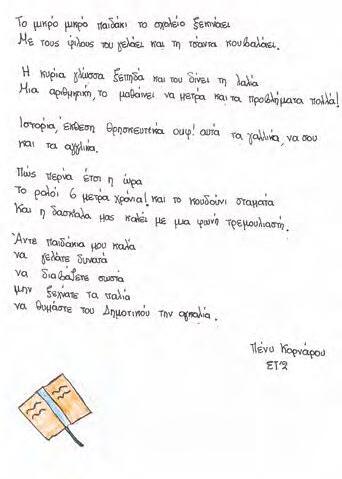 Το μικρό μικρό παιδάκι το σχολείο ξεκινάει
Με τους φίλους του γελάει και τη τσάντα κουβαλάει.
Η κυρία γλώσσα ξεπηδά και του δίνει τη λαλιά
Μια αριθμητική, το μαθαίνει να μετρά και τα προβλήματα πολλά!
Ιστορία, έκθεση θρησκευτικά ουφ! αυτά τα γαλλικά, να σου
και τα αγγλικά.
Πώς περνά έτσι η ώρα
Το ρολόι 6 μετρά χρόνια! και το κουδούνι σταματά
Και η δασκάλα μας καλεί με μια φωνή τρεμουλιαστή.
Άντε παιδάκια μου καλά
να γελάτε δυνατά
να διαβάζετε σωστά
μην ξεχνάτε τα παλιά
να θυμάστε του Δημοτικού την αγκαλιά.
Πένυ Κορνάρου
ΣΤ'2